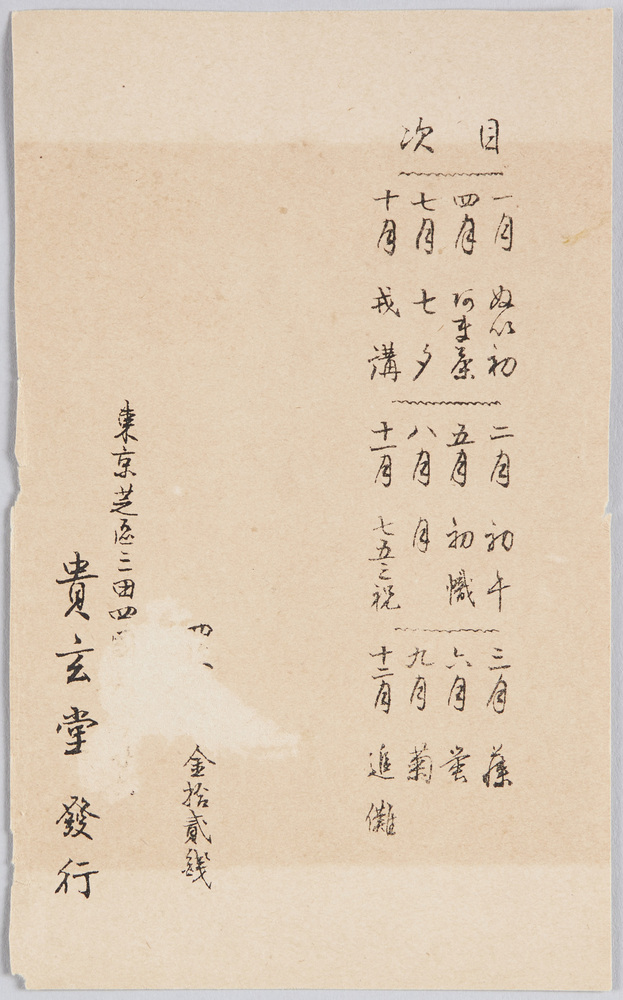 目次
一月 ぬい初
四月 阿ま茶
七月 七夕
十月 戎講
二月 初午
五月 初幟
八月 月
十一月 七五三祝
三月 藤
六月 蛍
九月 菊
十二月 追儺
金拾貳錢
東京芝區三田四
貴玄堂 發行